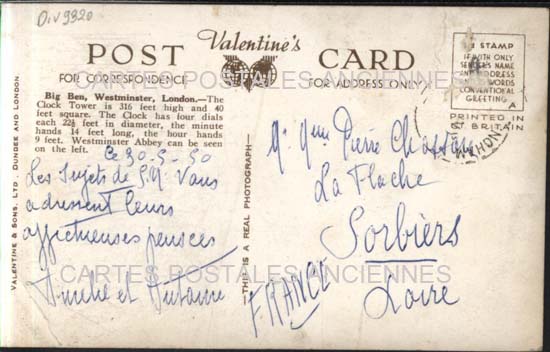 Div 9320
Valentine's
POST CARD
FOR CORRESPONDENCE
FOR ADDRESS ONLY
STAMP
IF WITH ONLY
SENDER'S NAME
AND ADDRESS
WORDS
CONVENTIONAL
GREETING
PRINTED IN
BRITAIN
Big Ben, Westminster, London.—The
Clock Tower is 316 feet high and 40
feet square. The Clock has four dials
each 22½ feet in diameter, the minute
hands 14 feet long, the hour hands
9 feet. Westminster Abbey can be seen
on the left.
Ce 30-5-50
Les Sujets de S.M. Vous
adressent leurs
affectueuses pensées
Amélie et
VALENTINE & SONS, LTD. DUNDEE AND LONDON
THIS IS A REAL PHOTOGRAPH
Pierre
La Flache
Sorbiers
Loire
FRANCE
CARTES POSTALES ANCIENNES
CARTES POSTALES ANCIENNES